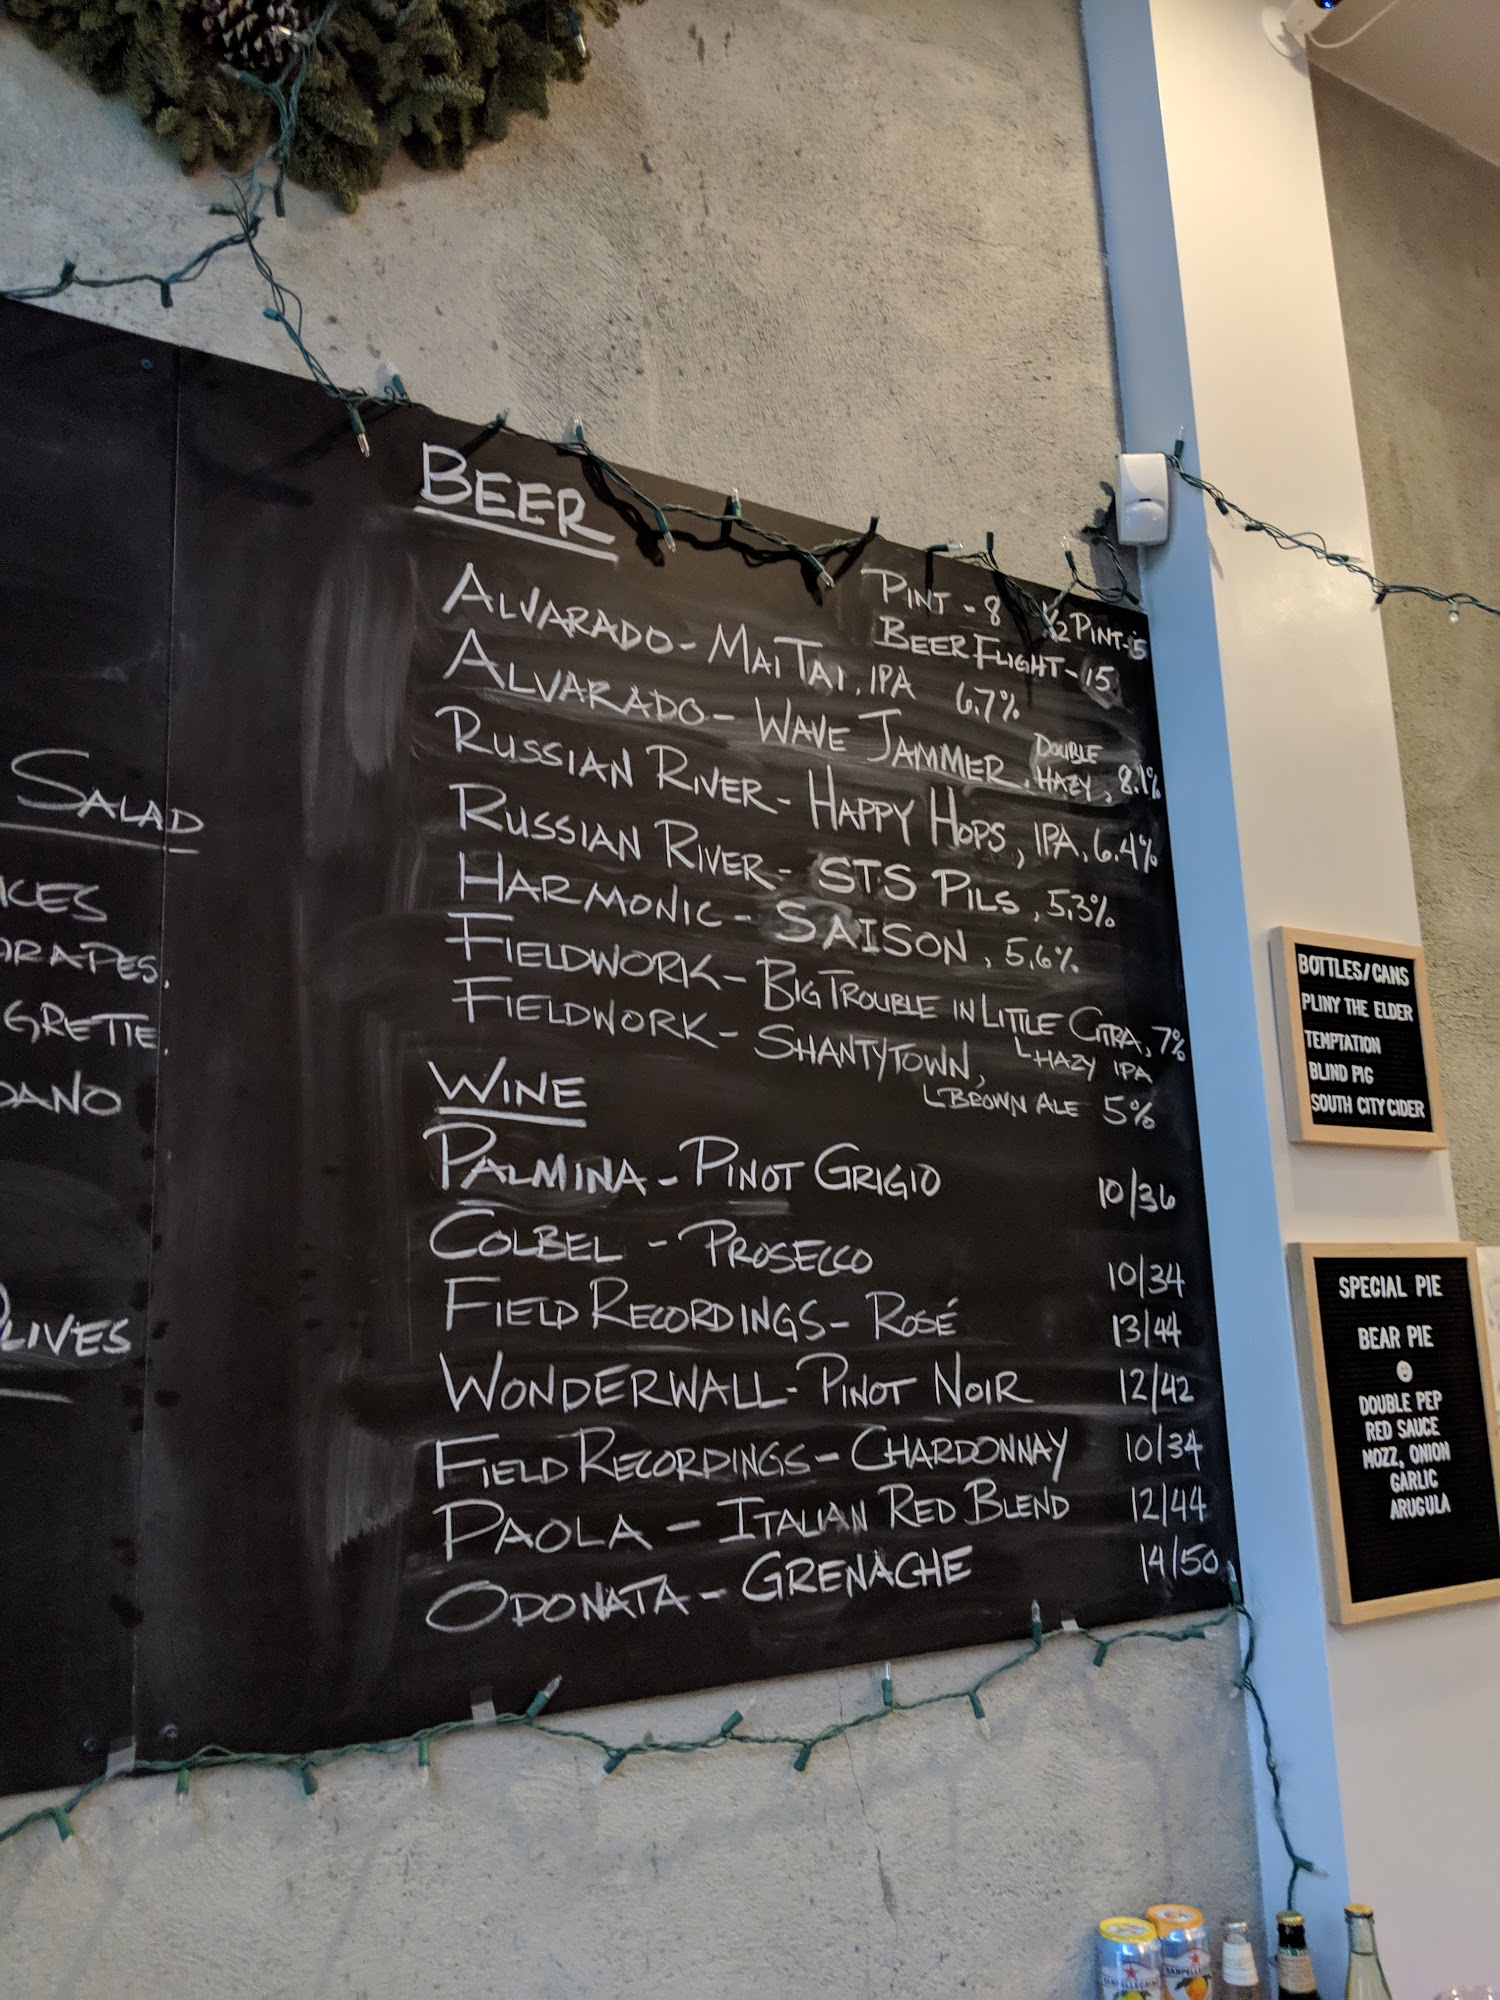 SALAD
GRAPES.
LIVES
BEER
PINT - 8 1/2 PINT - 5
BEER FLIGHT - 15
ALVARADO - MAI TAI, IPA 6.7%
ALVARADO - WAVE JAMMER, DOUBLE HAZY, 8.1%
RUSSIAN RIVER - HAPPY HOPS, IPA, 6.4%
RUSSIAN RIVER - STS PILS, 5.3%
HARMONIC - SAISON, 5.6%
FIELDWORK - BIG TROUBLE IN LITTLE CITRA, 7%
HAZY IPA
FIELDWORK - SHANTYTOWN,
BROWN ALE 5%
WINE
PALMINA - PINOT GRIGIO 10/36
COLBEL - PROSECCO 10/34
FIELD RECORDINGS - ROSÉ 13/44
WONDERWALL - PINOT NOIR 12/42
FIELD RECORDINGS - CHARDONNAY 10/34
PAOLA - ITALIAN RED BLEND 12/44
ODONATA - GRENACHE 14/50
BOTTLES/CANS
PLINY THE ELDER
TEMPTATION
BLIND PIG
SOUTH CITY CIDER
SPECIAL PIE
BEAR PIE
DOUBLE PEP
RED SAUCE
MOZZ, ONION
GARLIC
ARUGULA